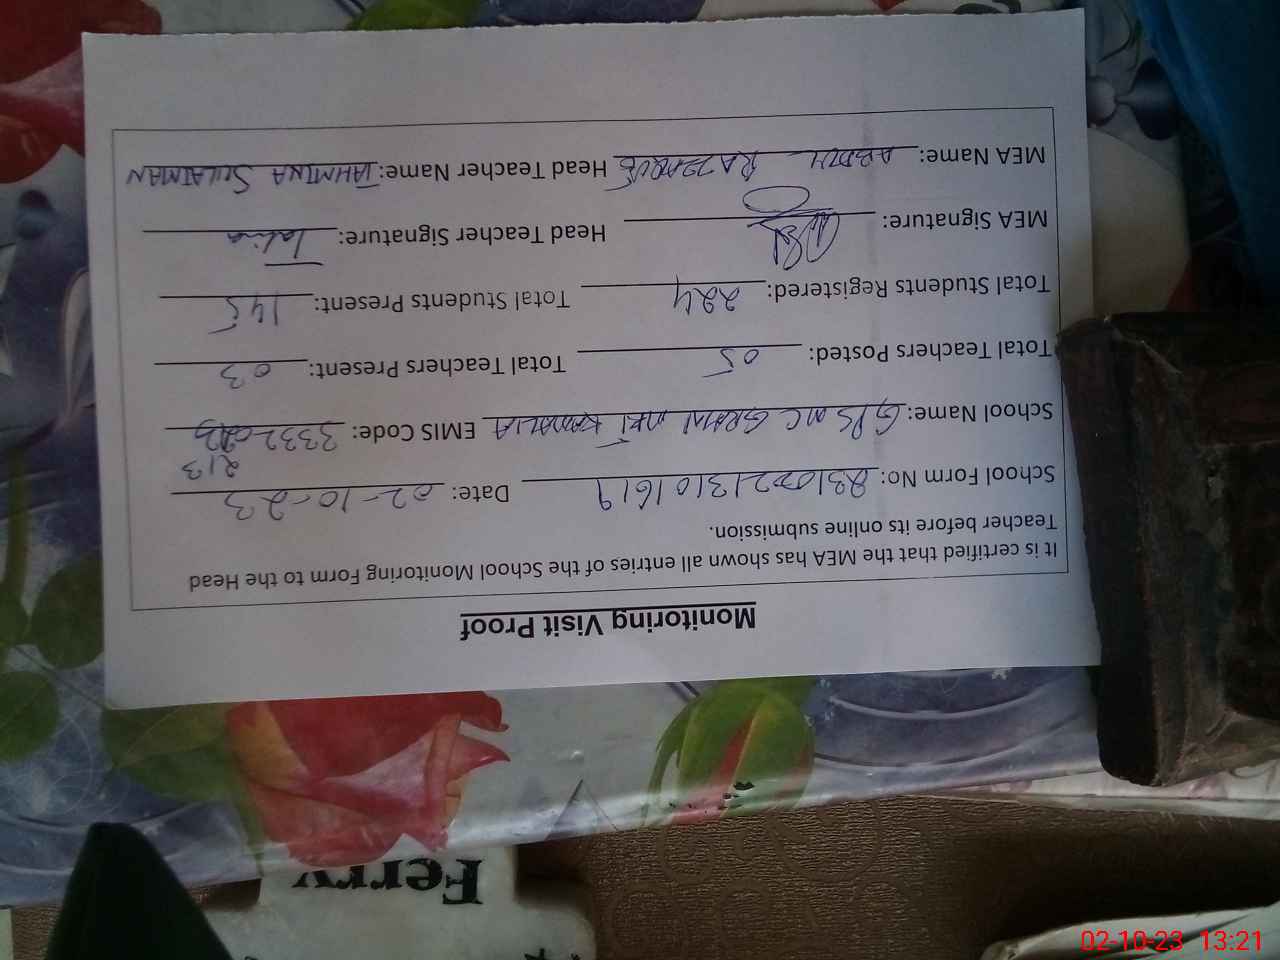 Monitoring Visit Proof
It is certified that the MEA has shown all entries of the School Monitoring Form to the Head
Teacher before its online submission.
School Form No: Date: 02-10-23
School Name: EMIS Code: 3332 213
Total Teachers Posted: 05 Total Teachers Present: 03
Total Students Registered: 224 Total Students Present: 145
MEA Signature: Head Teacher Signature:
MEA Name: ABDUL Head Teacher Name: TAHMINA SULAIMAN
Ferry
02-10-23 13:21